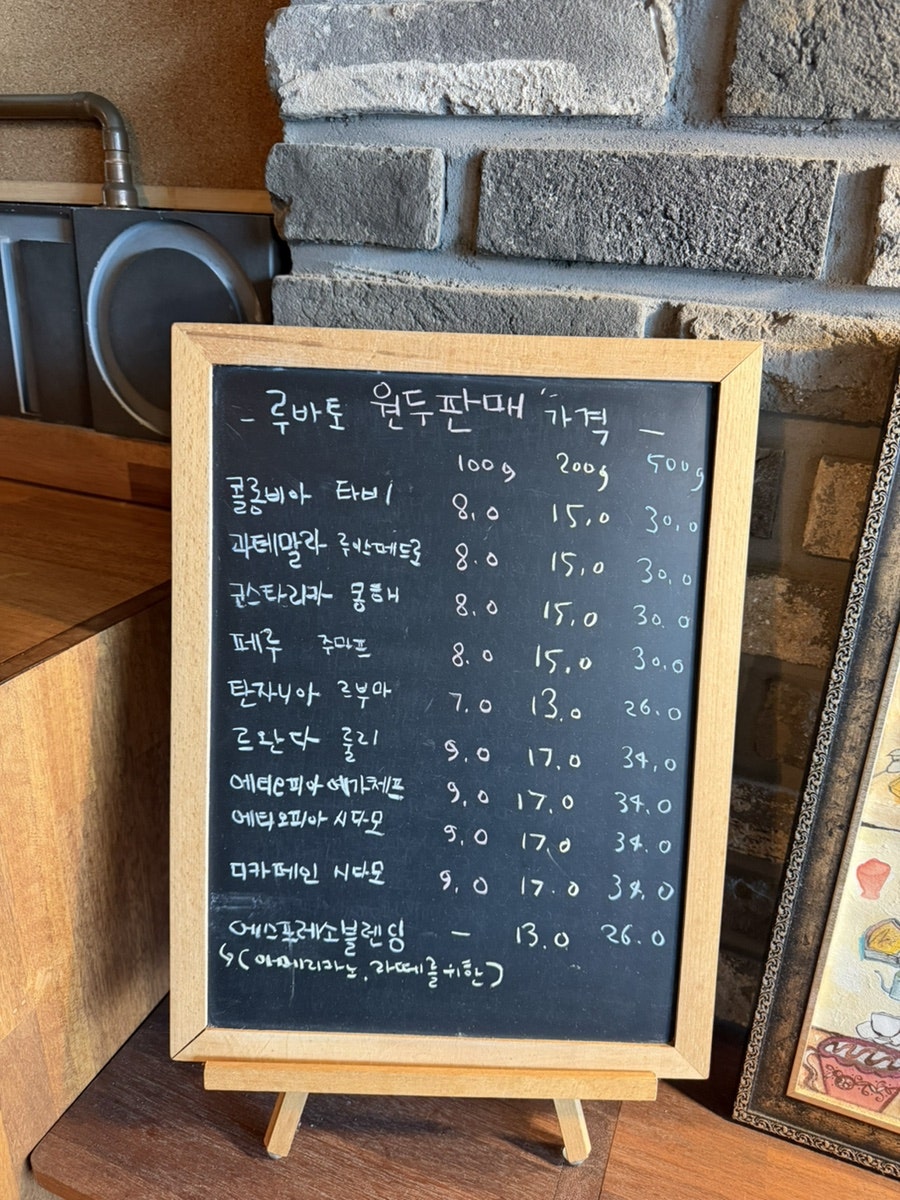 - 루바토 원두판매 가격 -
100g 200g 500g
콜롬비아 타비 8.0 15.0 30.0
과테말라 루반페드로 8.0 15.0 30.0
코스타리카 8.0 15.0 30.0
페루 주마프 8.0 15.0 30.0
탄자니아 르부마 7.0 13.0 26.0
르완다 룰리 9.0 17.0 34.0
에티오피아 예가체프 9.0 17.0 34.0
에티오피아 시다모 9.0 17.0 34.0
디카페인 시다모 9.0 17.0 34.0
에스프레소블렌딩 - 13.0 26.0
↳(아메리카노, 라떼를 위한)